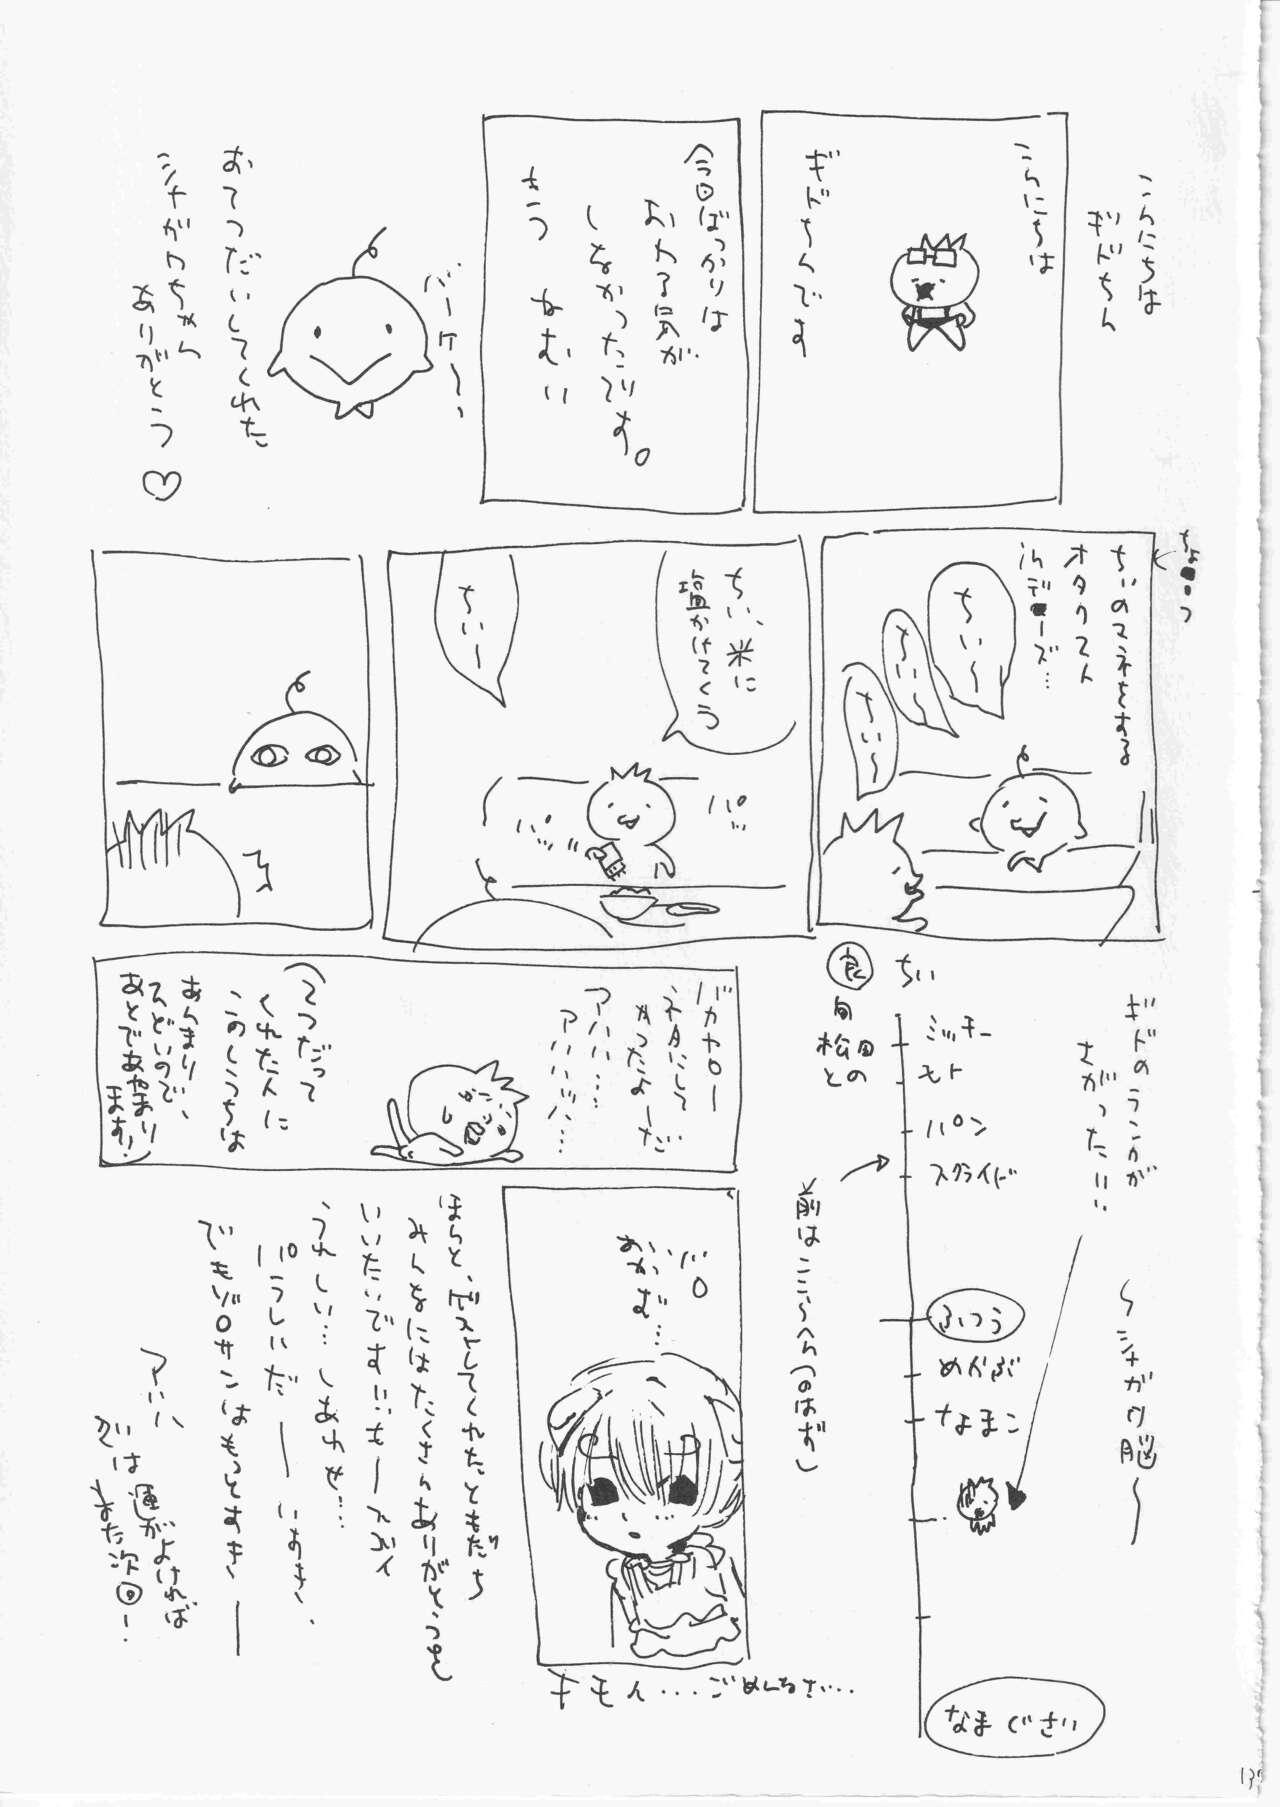 こんにちは
ギドちん
こんにちは
ギドちんです
今回ばっかりは
おわる気が
しなかったです。
きつ ねむい
バーケ〜、
おてつだいしてくれた
シナガワちゃん
ありがとう♡
ちいのマネをする
オタクスト
ちい〜
ちい〜
ちい〜
ちい、米に
塩かけてくう
パッ
ちいー
ギドのランクが
さがった!!!
〜シナガワ脳〜
ちい
ミッキー
モト
パン
スクライド
ふつう
めかぶ
なまこ
なまぐさい
良
旬
松田
との
前はここらへん(のはず)
バカヤロー
ネタにして
やったよーだ
アハハ…
アハハハハ…
(てつだって
くれた人に
このしうちは
あんまり
ひどいので、
あとであやまり
ます!)
バロ
おかむ…
キモイ...ごめんなさい...
ほんと、ゲストしてくれたともだち
みんなにはたくさんありがとうを
いいたいです!!!もースゴイ
うれしい…しあわせ…
パラしいだ――いすき、
でもゾロサンはもっとすき――
アハハ
では運がよければ
また次回ー!